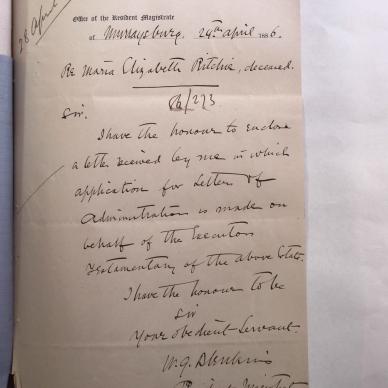 28 April
Office of the Resident Magistrate
of Murraysburg, 24th April 1886.
Re Maria Elizabeth Ritchie, deceased.
/273
Sir.
I have the honour to enclose
a letter received by me in which
application for Letters of
Administration is made on
behalf of the Executors
Testamentary of the above Estate.
I have the honour to be
Sir
Your obedient Servant.
W. G.
Resident Magistrate